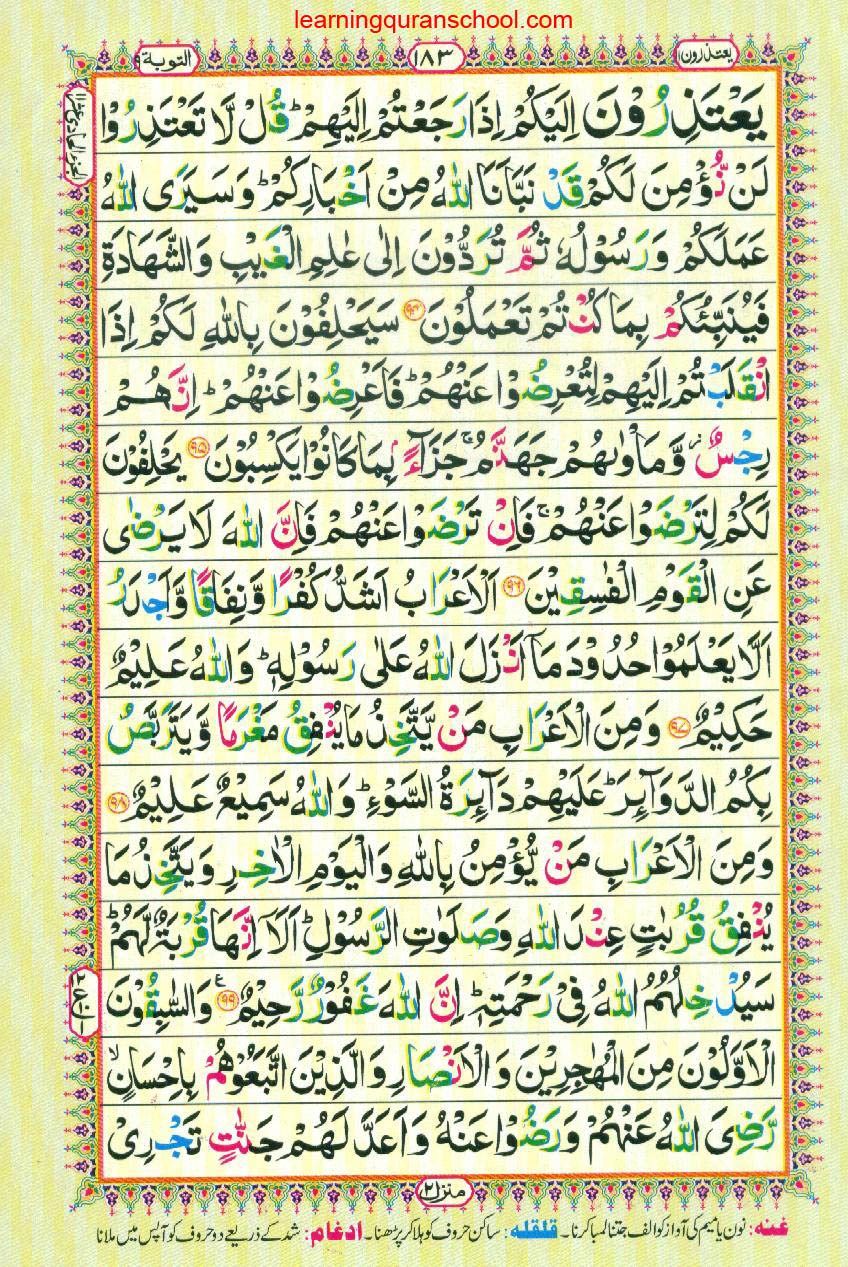 learningquranschool.com
يعتذرون ١١
١٨٣
التوبة ٩
يَعْتَذِرُوْنَ اِلَيْكُمْ اِذَا رَجَعْتُمْ اِلَيْهِمْ ؕ قُلْ لَّا تَعْتَذِرُوْا
لَنْ نُّؤْمِنَ لَكُمْ قَدْ نَبَّاَنَا اللّٰهُ مِنْ اَخْبَارِكُمْ ؕ وَ سَيَرَى اللّٰهُ
عَمَلَكُمْ وَ رَسُوْلُهٗ ثُمَّ تُرَدُّوْنَ اِلٰى عٰلِمِ الْغَيْبِ وَ الشَّهَادَةِ
فَيُنَبِّئُكُمْ بِمَا كُنْتُمْ تَعْمَلُوْنَ ۹۴ سَيَحْلِفُوْنَ بِاللّٰهِ لَكُمْ اِذَا
انْقَلَبْتُمْ اِلَيْهِمْ لِتُعْرِضُوْا عَنْهُمْ ؕ فَاَعْرِضُوْا عَنْهُمْ ؕ اِنَّهُمْ
رِجْسٌ ؗ وَّ مَاْوٰىهُمْ جَهَنَّمُ ۚ جَزَآءًۢ بِمَا كَانُوْا يَكْسِبُوْنَ ۹۵ يَحْلِفُوْنَ
لَكُمْ لِتَرْضَوْا عَنْهُمْ ۚ فَاِنْ تَرْضَوْا عَنْهُمْ فَاِنَّ اللّٰهَ لَا يَرْضٰى
عَنِ الْقَوْمِ الْفٰسِقِيْنَ ۹۶ اَلْاَعْرَابُ اَشَدُّ كُفْرًا وَّ نِفَاقًا وَّ اَجْدَرُ
اَلَّا يَعْلَمُوْا حُدُوْدَ مَاۤ اَنْزَلَ اللّٰهُ عَلٰى رَسُوْلِهٖ ؕ وَ اللّٰهُ عَلِيْمٌ
حَكِيْمٌ ۹۷ وَ مِنَ الْاَعْرَابِ مَنْ يَّتَّخِذُ مَا يُنْفِقُ مَغْرَمًا وَّ يَتَرَبَّصُ
بِكُمُ الدَّوَآئِرَ ؕ عَلَيْهِمْ دَآئِرَةُ السَّوْءِ ؕ وَ اللّٰهُ سَمِيْعٌ عَلِيْمٌ ۹۸
وَ مِنَ الْاَعْرَابِ مَنْ يُّؤْمِنُ بِاللّٰهِ وَ الْيَوْمِ الْاٰخِرِ وَ يَتَّخِذُ مَا
يُنْفِقُ قُرُبٰتٍ عِنْدَ اللّٰهِ وَ صَلَوٰتِ الرَّسُوْلِ ؕ اَلَاۤ اِنَّهَا قُرْبَةٌ لَّهُمْ ؕ
سَيُدْخِلُهُمُ اللّٰهُ فِيْ رَحْمَتِهٖ ؕ اِنَّ اللّٰهَ غَفُوْرٌ رَّحِيْمٌ ۹۹ ع وَ السّٰبِقُوْنَ
الْاَوَّلُوْنَ مِنَ الْمُهٰجِرِيْنَ وَ الْاَنْصَارِ وَ الَّذِيْنَ اتَّبَعُوْهُمْ بِاِحْسَانٍ ۙ
رَّضِيَ اللّٰهُ عَنْهُمْ وَ رَضُوْا عَنْهُ وَ اَعَدَّ لَهُمْ جَنّٰتٍ تَجْرِيْ
منزل ٢
غنہ: نون یا میم کی آواز کو الف جتنا لمبا کرنا۔ قلقلہ: ساکن حروف کو ہلا کر پڑھنا۔ ادغام: شد کے ذریعے دو حروف کو آپس میں ملانا